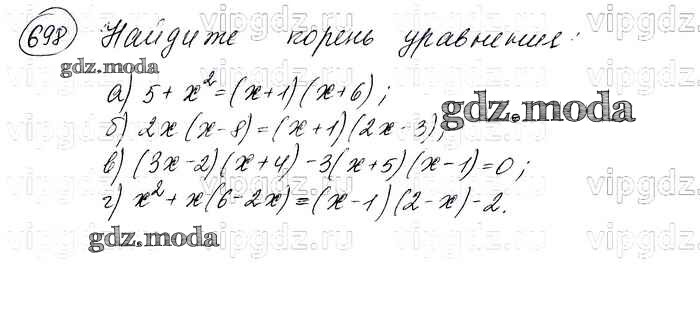 698 Найдите корень уравнения:
а) 5 + x² = (x+1)(x+6);
б) 2x(x-8) = (x+1)(2x-3);
в) (3x-2)(x+4) - 3(x+5)(x-1) = 0;
г) x² + x(6-2x) = (x-1)(2-x) - 2.
gdz.moda
gdz.moda
gdz.moda
vipgdz.ru